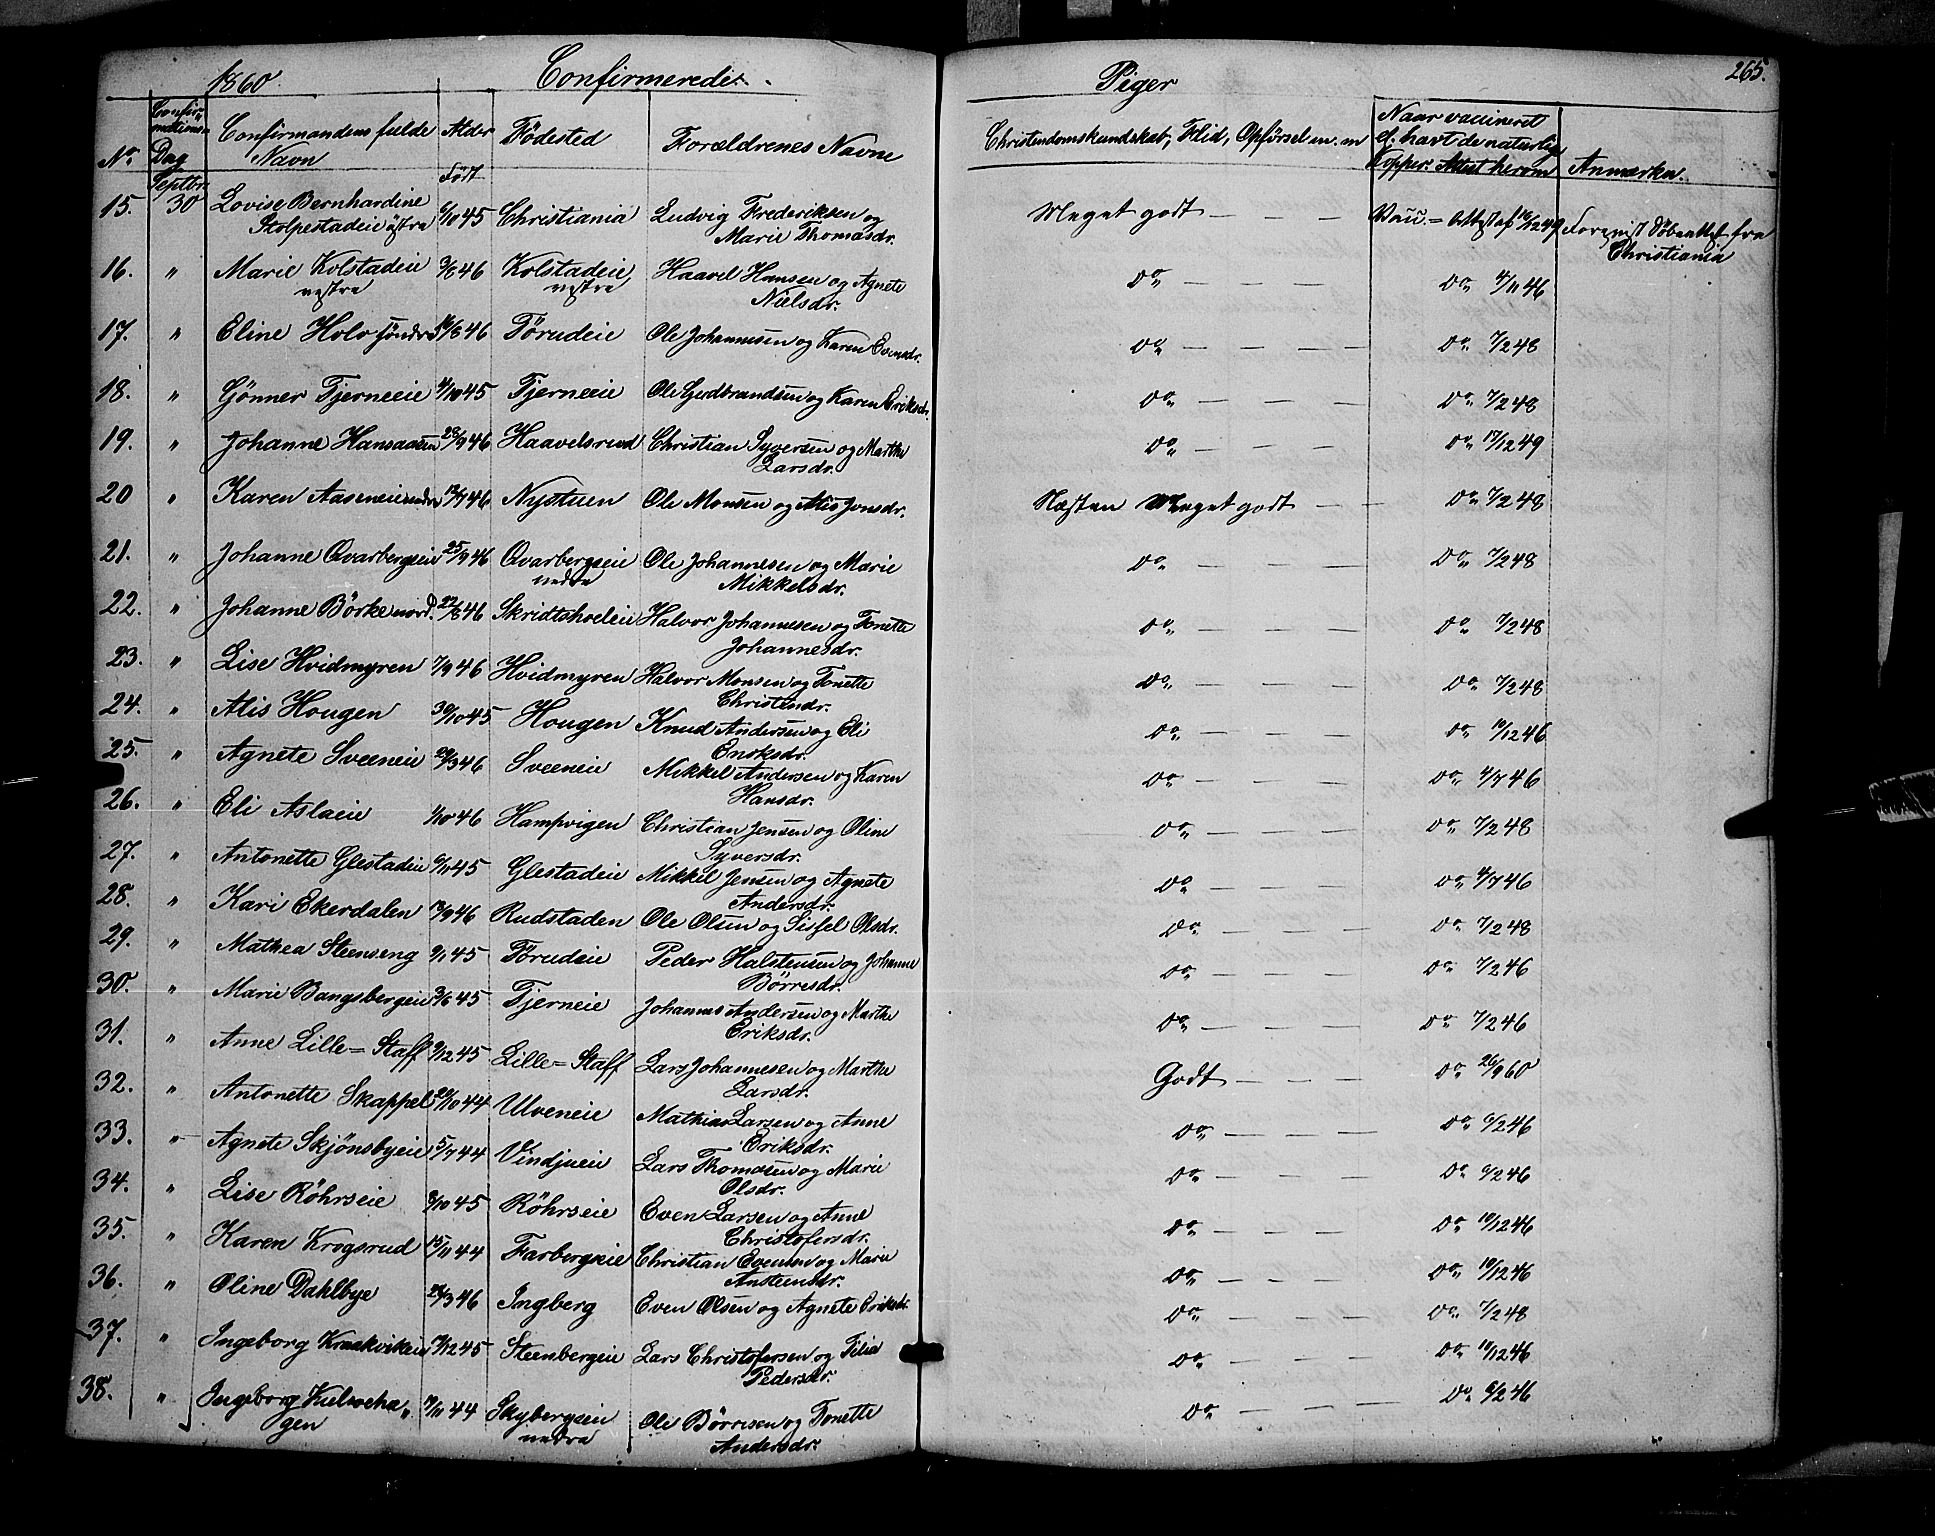 1860. Confirmerede. Piger 265.
No. Confirmations Dag Confirmandens fulde Navn Alder Fødested Forældrenes Navne Christendomskundskab, Flid, Opførsel m. m Naar vaccineret el. havt de naturlige Kopper. Attest herom Anmærkn.
Septbr. Født
15. 30 Lovise Bernhardine 6/10 45 Christiania Ludvig Frederiksen og Meget godt — — Vacc. = Attest af 16/12 49 Forevist Døbeattest fra
Stolpestadeie østre Marie Thomasdr. Christiania
16. " Marie Kolstadeie 3/8 46 Kolstadeie Haavel Hansen og Agnete Do — — — Do 4/11 46
vestre vestre Nielsdr.
17. " Eline Holo søndre 16/8 46 Törudeie Ole Johannesen og Karen Evensdr. Do — — — Do 7/2 48
18. " Gönner Tjerneeie 4/10 45 Tjerneeie Ole Gudbrandsen og Karen Eriksdr. Do — — — Do 7/2 48
19. " Johanne Hansaasen 28/9 46 Haavelsrud Christian Syversen og Marthe Do — — — Do 17/12 49
Larsdr.
20 " Karen Aasmeie nedre 12/7 46 Nystuen Ole Monsen og Alis Jonsdr. Næsten Meget godt — — Do 7/2 48
21. " Johanne Qvarbergseie 25/9 46 Qvarbergseie Ole Johannesen og Marie Do — — — Do 7/2 48
nedre Mikkelsdr.
22. " Johanne Börke nord. 22/8 46 Skridtshoeleie Halvor Johannesen og Tonette Do — — — Do 7/2 48
Johannesdr.
23. " Lise Hvidmyren 7/9 46 Hvidmyren Halvor Monsen og Tonette Do — — — Do 7/2 48
Christendr.
24. " Alis Hougen 30/10 45 Hougen Knud Andersen og Eli Do — — — Do 19/12 46
Eriksdr.
25. " Agnete Sveeneie 29/3 46 Sveeneie Mikkel Andersen og Karen Do — — — Do 4/7 46
Hansdr.
26. " Eli Aslaeie 1/10 46 Hampvigen Christian Jensen og Oline Do — — — Do 7/2 48
Syversdr.
27. " Antonette Glestadeie 6/11 45 Glestadeie Mikkel Jensen og Agnete Do — — — Do 4/7 46
Andersdr.
28. " Kari Ekerdalen 17/9 46 Rudstaden Ole Olsen og Sissel Olsdr. Do — — — Do 7/2 48
29. " Mathea Steenseng 9/1 45 Törudeie Peder Halstensen og Johanne Do — — — Do 7/2 46
Börresdr.
30. " Marie Bangsbergeie 3/6 45 Tjerneie Johannes Andersen og Marthe Do — — — Do 7/2 46
Eriksdr.
31. " Anne Lille=Staff 9/12 45 Lille=Staff Lars Johannesen og Marthe Godt — — — Do 26/9 60
Larsdr.
32. " Antonette Skappel 29/10 44 Ulveneie Mathias Larsen og Anne Do — — — Do 6/2 46
Eriksdr.
33. " Agnete Skjönsbyeie 5/7 44 Vindjueie Lars Thomasen og Marie Do — — — Do 6/2 46
Olsdr.
34. " Lise Röhrseie 8/10 45 Röhrseie Even Larsen og Anne Do — — — Do 19/12 46
Christofersdr.
35. " Karen Krogsrud 15/11 44 Farbergseie Christian Evensen og Marie Do — — — Do 19/12 46
Anstensdr.
36. " Oline Dahlbye 28/3 46 Ingberg Even Olsen og Agnete Eriksdr. Do — — — Do 7/2 48
37. " Ingeborg Kraakvikeie 17/12 45 Steenbergeie Lars Christofersen og Pedersdr. Do — — — Do 19/12 46
38. " Ingeborg 17/11 44 Skybergseie Ole Börresen og Tonette Do — — — Do 6/2 46
gen nedre Andersdr.